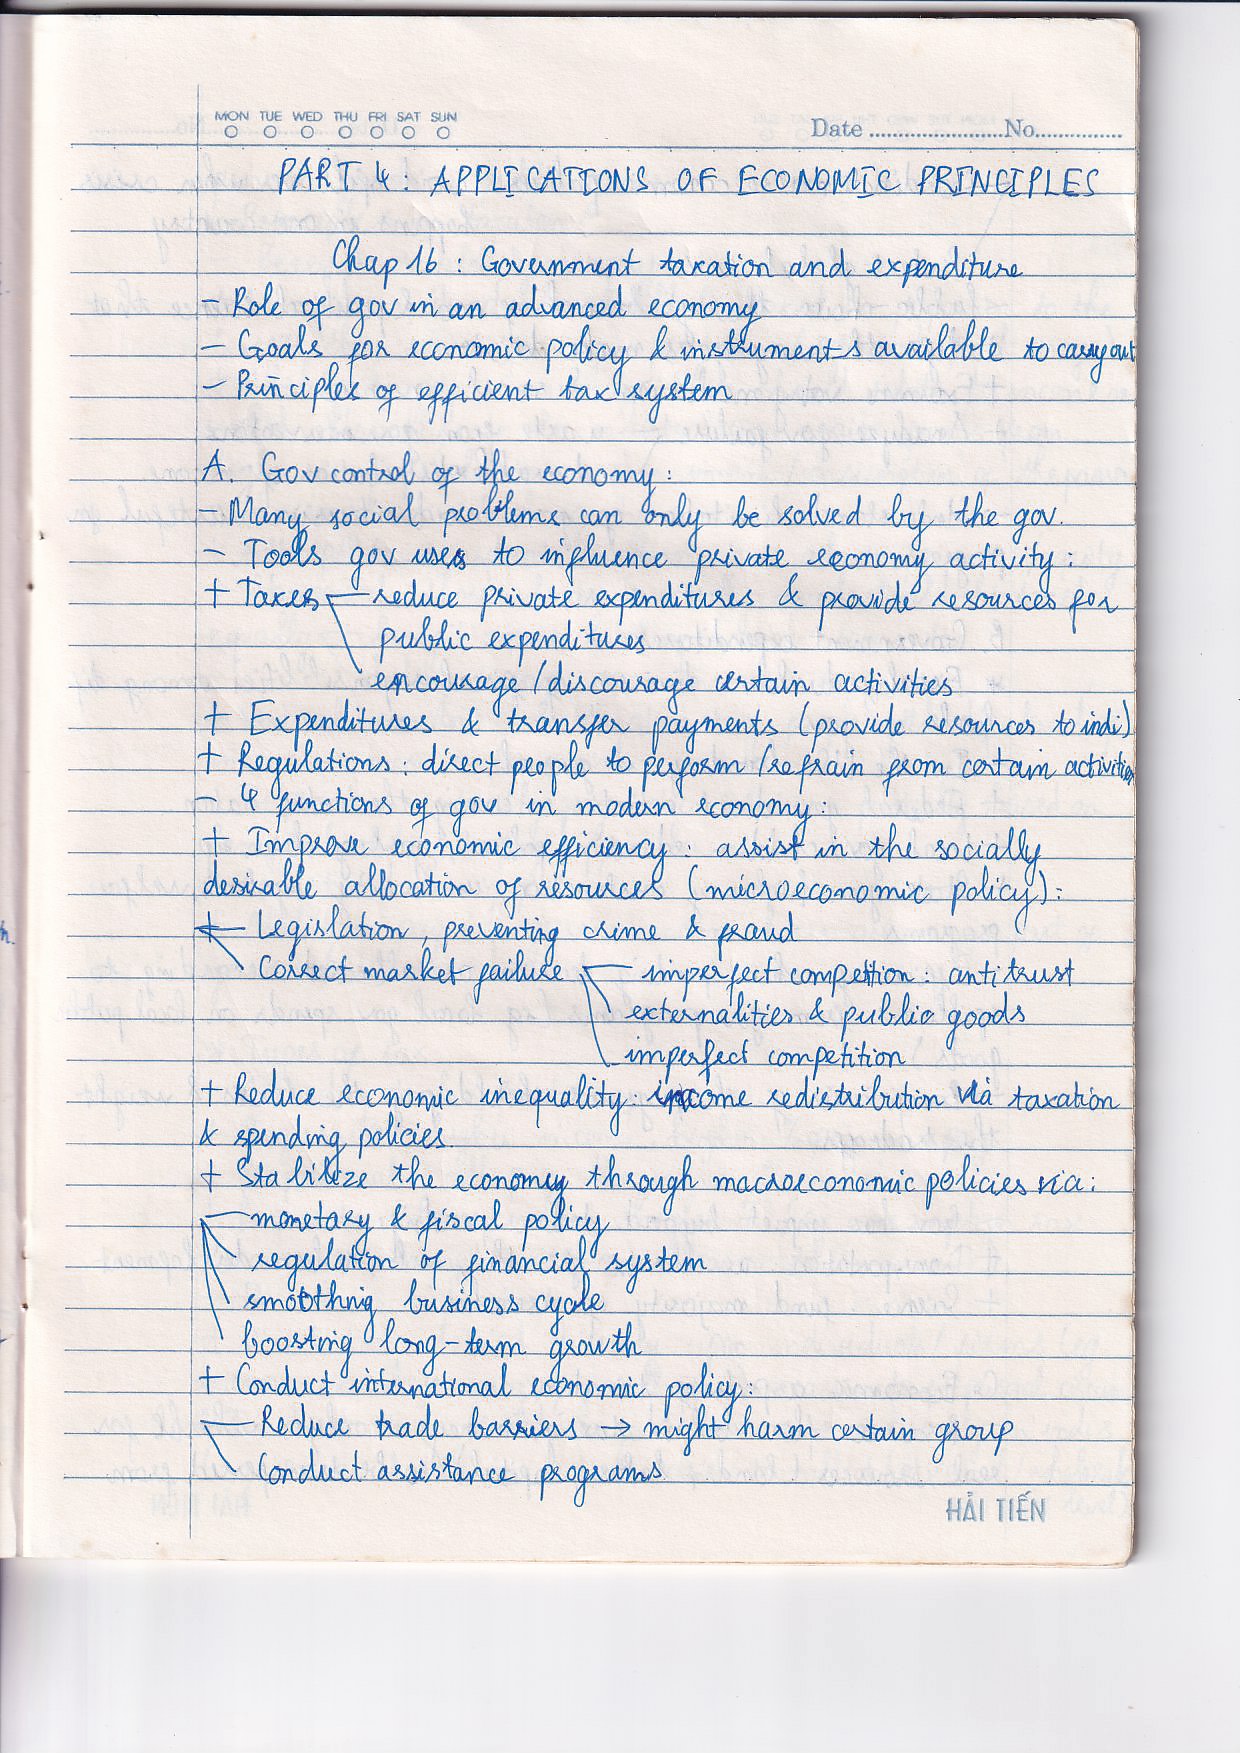 MON TUE WED THU FRI SAT SUN
Date ........................No................
PART 4 : APPLICATIONS OF ECONOMIC PRINCIPLES
Chap 16 : Government taxation and expenditure
- Role of gov in an advanced economy
- Goals for economic policy & instruments available to carry out
- Principles of efficient tax system
A. Gov control of the economy :
- Many social problems can only be solved by the gov.
- Tools gov uses to influence private economy activity :
+ Taxes reduce private expenditures & provide resources for
public expenditures
encourage / discourage certain activities
+ Expenditures & transfer payments (provide resources to indi)
+ Regulations : direct people to perform / refrain from certain activities
- 4 functions of gov in modern economy :
+ Improve economic efficiency : assist in the socially
desirable allocation of resources (microeconomic policy) :
Legislation, preventing crime & fraud
Correct market failure imperfect competition : antitrust
externalities & public goods
imperfect competition
+ Reduce economic inequality : income redistribution via taxation
& spending policies.
+ Stabilize the economy through macroeconomic policies via :
monetary & fiscal policy
regulation of financial system
smoothnig business cycle
boosting long-term growth
+ Conduct international economic policy :
Reduce trade barriers → might harm certain group
Conduct assistance programs.
HẢI TIẾN